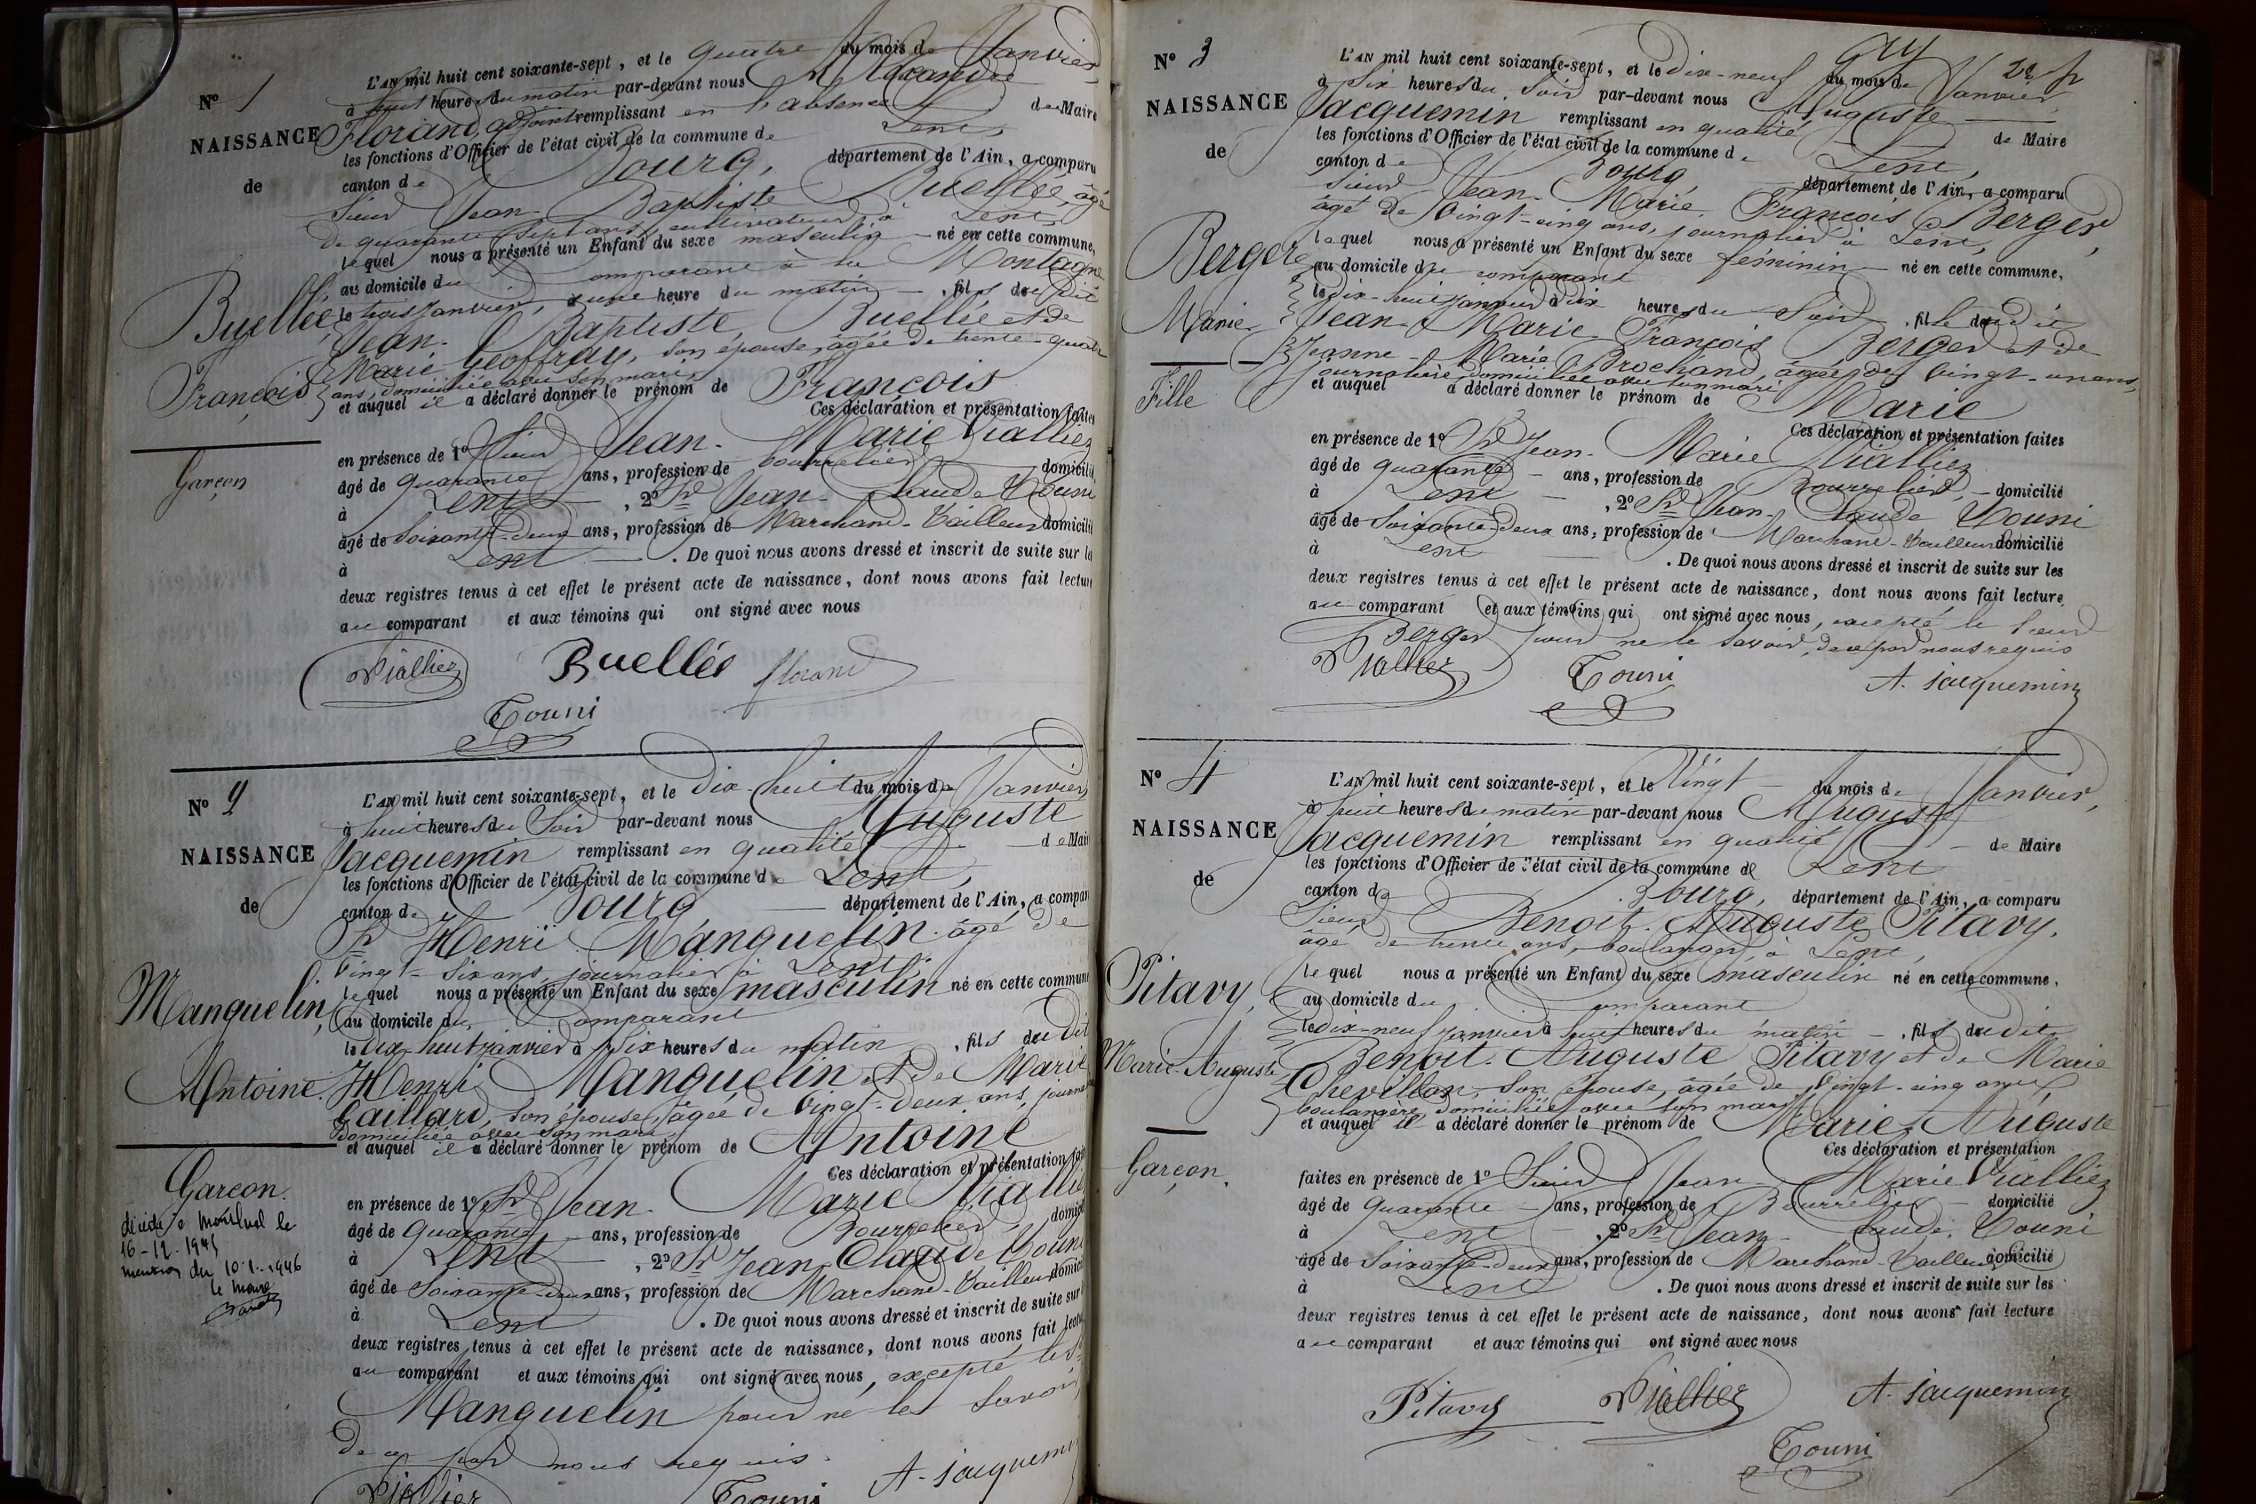 N° 1
NAISSANCE
de
Buellée,
François
Garçon
L'AN mil huit cent soixante-sept, et le quatre du mois de Janvier
à huit heures du matin par-devant nous Alexandre
Florand, adjoint remplissant en l'absence de Maire
les fonctions d'Officier de l'état civil de la commune de Lent,
canton de Bourg, département de l'Ain, a comparu
Sieur Jean-Baptiste Buellée, âgé
de quarante-sept ans, cultivateur à Lent,
lequel nous a présenté un Enfant du sexe masculin né en cette commune,
au domicile du comparant à la Montagne
le trois Janvier, à une heure du matin, fils du dit
Jean-Baptiste Buellée et de
Marie Geoffray, son épouse, âgée de trente-quatre
ans, domiciliée avec son mari
et auquel il a déclaré donner le prénom de François
Ces déclaration et présentation faites
en présence de 1° Sieur Jean-Marie Vialliez
âgé de quarante ans, profession de bourrelier domicilié
à Lent, 2° Sr Jean-Claude Touni
âgé de soixante-deux ans, profession de Marchand-Tailleur domicilié
à Lent. De quoi nous avons dressé et inscrit de suite sur les
deux registres tenus à cet effet le présent acte de naissance, dont nous avons fait lecture
au comparant et aux témoins qui ont signé avec nous
Vialliez Buellée florand
Touni
N° 2
NAISSANCE
de
Manguelin,
Antoine.
Garçon.
décédé à Montluel le
16-12-1945
mention du 10-1-1946
le maire
L'AN mil huit cent soixante-sept, et le dix-huit du mois de Janvier
à huit heures du Soir par-devant nous Auguste
Jacquemin remplissant en qualité de Maire
les fonctions d'Officier de l'état civil de la commune de Lent,
canton de Bourg département de l'Ain, a comparu
Sr Henri Manguelin âgé de
vingt-six ans, journalier à Lent,
lequel nous a présenté un Enfant du sexe masculin né en cette commune
au domicile du comparant
le dix-huit janvier à dix heures du matin, fils du dit
Henri Manguelin et de Marie
Gaillard, son épouse, âgée de vingt-deux ans, journalière
domiciliée avec son mari
et auquel il a déclaré donner le prénom de Antoine
Ces déclaration et présentation faites
en présence de 1° Sr Jean-Marie Viallie
âgé de quarante ans, profession de Bourrelier domicilié
à Lent, 2° Sr Jean-Claude Touni
âgé de soixante-deux ans, profession de Marchand-Tailleur domicilié
à Lent. De quoi nous avons dressé et inscrit de suite sur
deux registres tenus à cet effet le présent acte de naissance, dont nous avons fait lecture
au comparant et aux témoins qui ont signé avec nous, excepté le Sr
Manguelin pour ne le savoir,
de ce par nous requis.
Viallier Touni A. Jacquemin
22
N° 3
NAISSANCE
de
Berger
Marie
Fille
L'AN mil huit cent soixante-sept, et le dix-neuf du mois de Janvier
à six heures du Soir par-devant nous Auguste
Jacquemin remplissant en qualité de Maire
les fonctions d'Officier de l'état civil de la commune de Lent,
canton de Bourg département de l'Ain, a comparu
Sieur Jean-Marie François Berger,
âgé de vingt-cinq ans, journalier à Lent,
lequel nous a présenté un Enfant du sexe féminin né en cette commune,
au domicile du comparant
le dix-huit janvier à dix heures du Soir, fille du dit
Jean-Marie François Berger et de
Jeanne-Marie Brochand, âgée de vingt-un ans,
journalière domiciliée avec son mari
et auquel a déclaré donner le prénom de Marie
Ces déclaration et présentation faites
en présence de 1° Sr Jean-Marie Vialliez
âgé de quarante ans, profession de Bourrelier domicilié
à Lent, 2° Sr Jean-Claude Touni
âgé de soixante-deux ans, profession de Marchand-Tailleur domicilié
à Lent. De quoi nous avons dressé et inscrit de suite sur les
deux registres tenus à cet effet le présent acte de naissance, dont nous avons fait lecture
au comparant et aux témoins qui ont signé avec nous, excepté le Sieur
Berger pour ne le savoir, de ce par nous requis
Viallier Touni A. Jacquemin
N° 4
NAISSANCE
de
Pitavy,
Marie-Auguste
Garçon.
L'AN mil huit cent soixante-sept, et le Vingt du mois de Janvier,
à huit heures du matin par-devant nous Auguste
Jacquemin remplissant en qualité de Maire
les fonctions d'Officier de l'état civil de la commune de Lent
canton de Bourg, département de l'Ain, a comparu
Sieur Benoit-Auguste Pitavy,
âgé de trente ans, boulanger, à Lent,
lequel nous a présenté un Enfant du sexe masculin né en cette commune,
au domicile du comparant
le dix-neuf janvier à huit heures du matin, fils du dit
Benoit-Auguste Pitavy et de Marie
Chevillon, son épouse, âgée de vingt-cinq ans,
boulangère domiciliée avec son mari
et auquel il a déclaré donner le prénom de Marie-Auguste
Ces déclaration et présentation
faites en présence de 1° Sieur Jean-Marie Vialliez
âgé de quarante ans, profession de Bourrelier domicilié
à Lent, 2° Sr Jean-Claude Touni
âgé de soixante-deux ans, profession de Marchand-Tailleur domicilié
à Lent. De quoi nous avons dressé et inscrit de suite sur les
deux registres tenus à cet effet le présent acte de naissance, dont nous avons fait lecture
au comparant et aux témoins qui ont signé avec nous
Pitavy Viallier A. Jacquemin
Touni